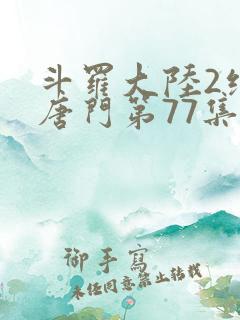 斗羅大陸2絕
唐門第77集
御手寫
未任同意禁止轉載